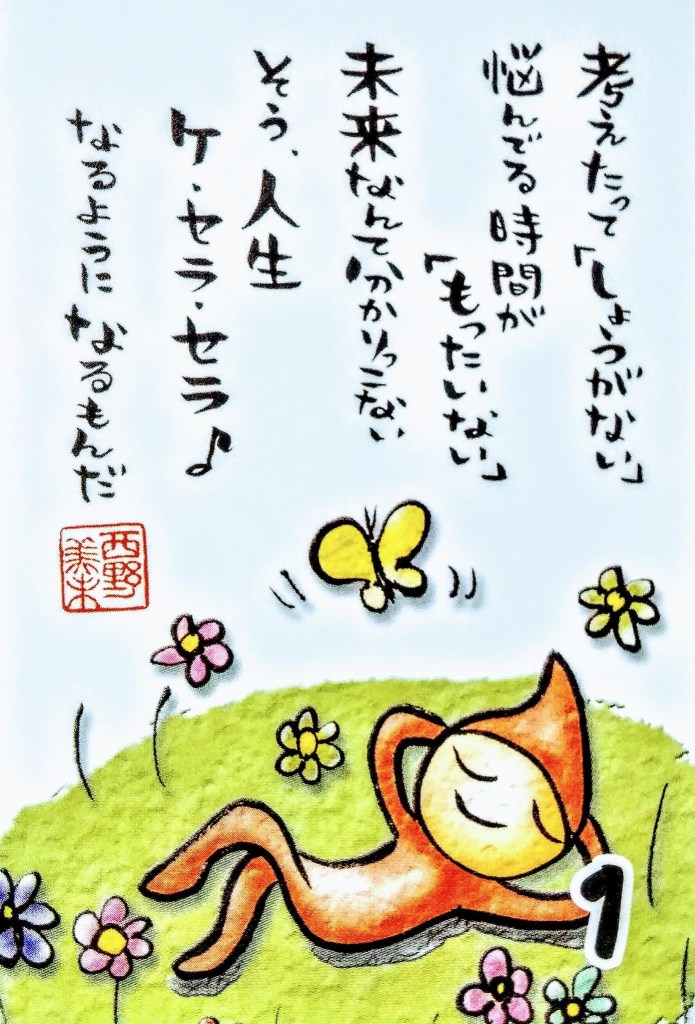 考えたって「しょうがない」
悩んでる時間が
「もったいない」
未来なんて分かりっこない
そう、人生
ケ・セラ・セラ♪
なるように なるもんだ
西野
美未
1